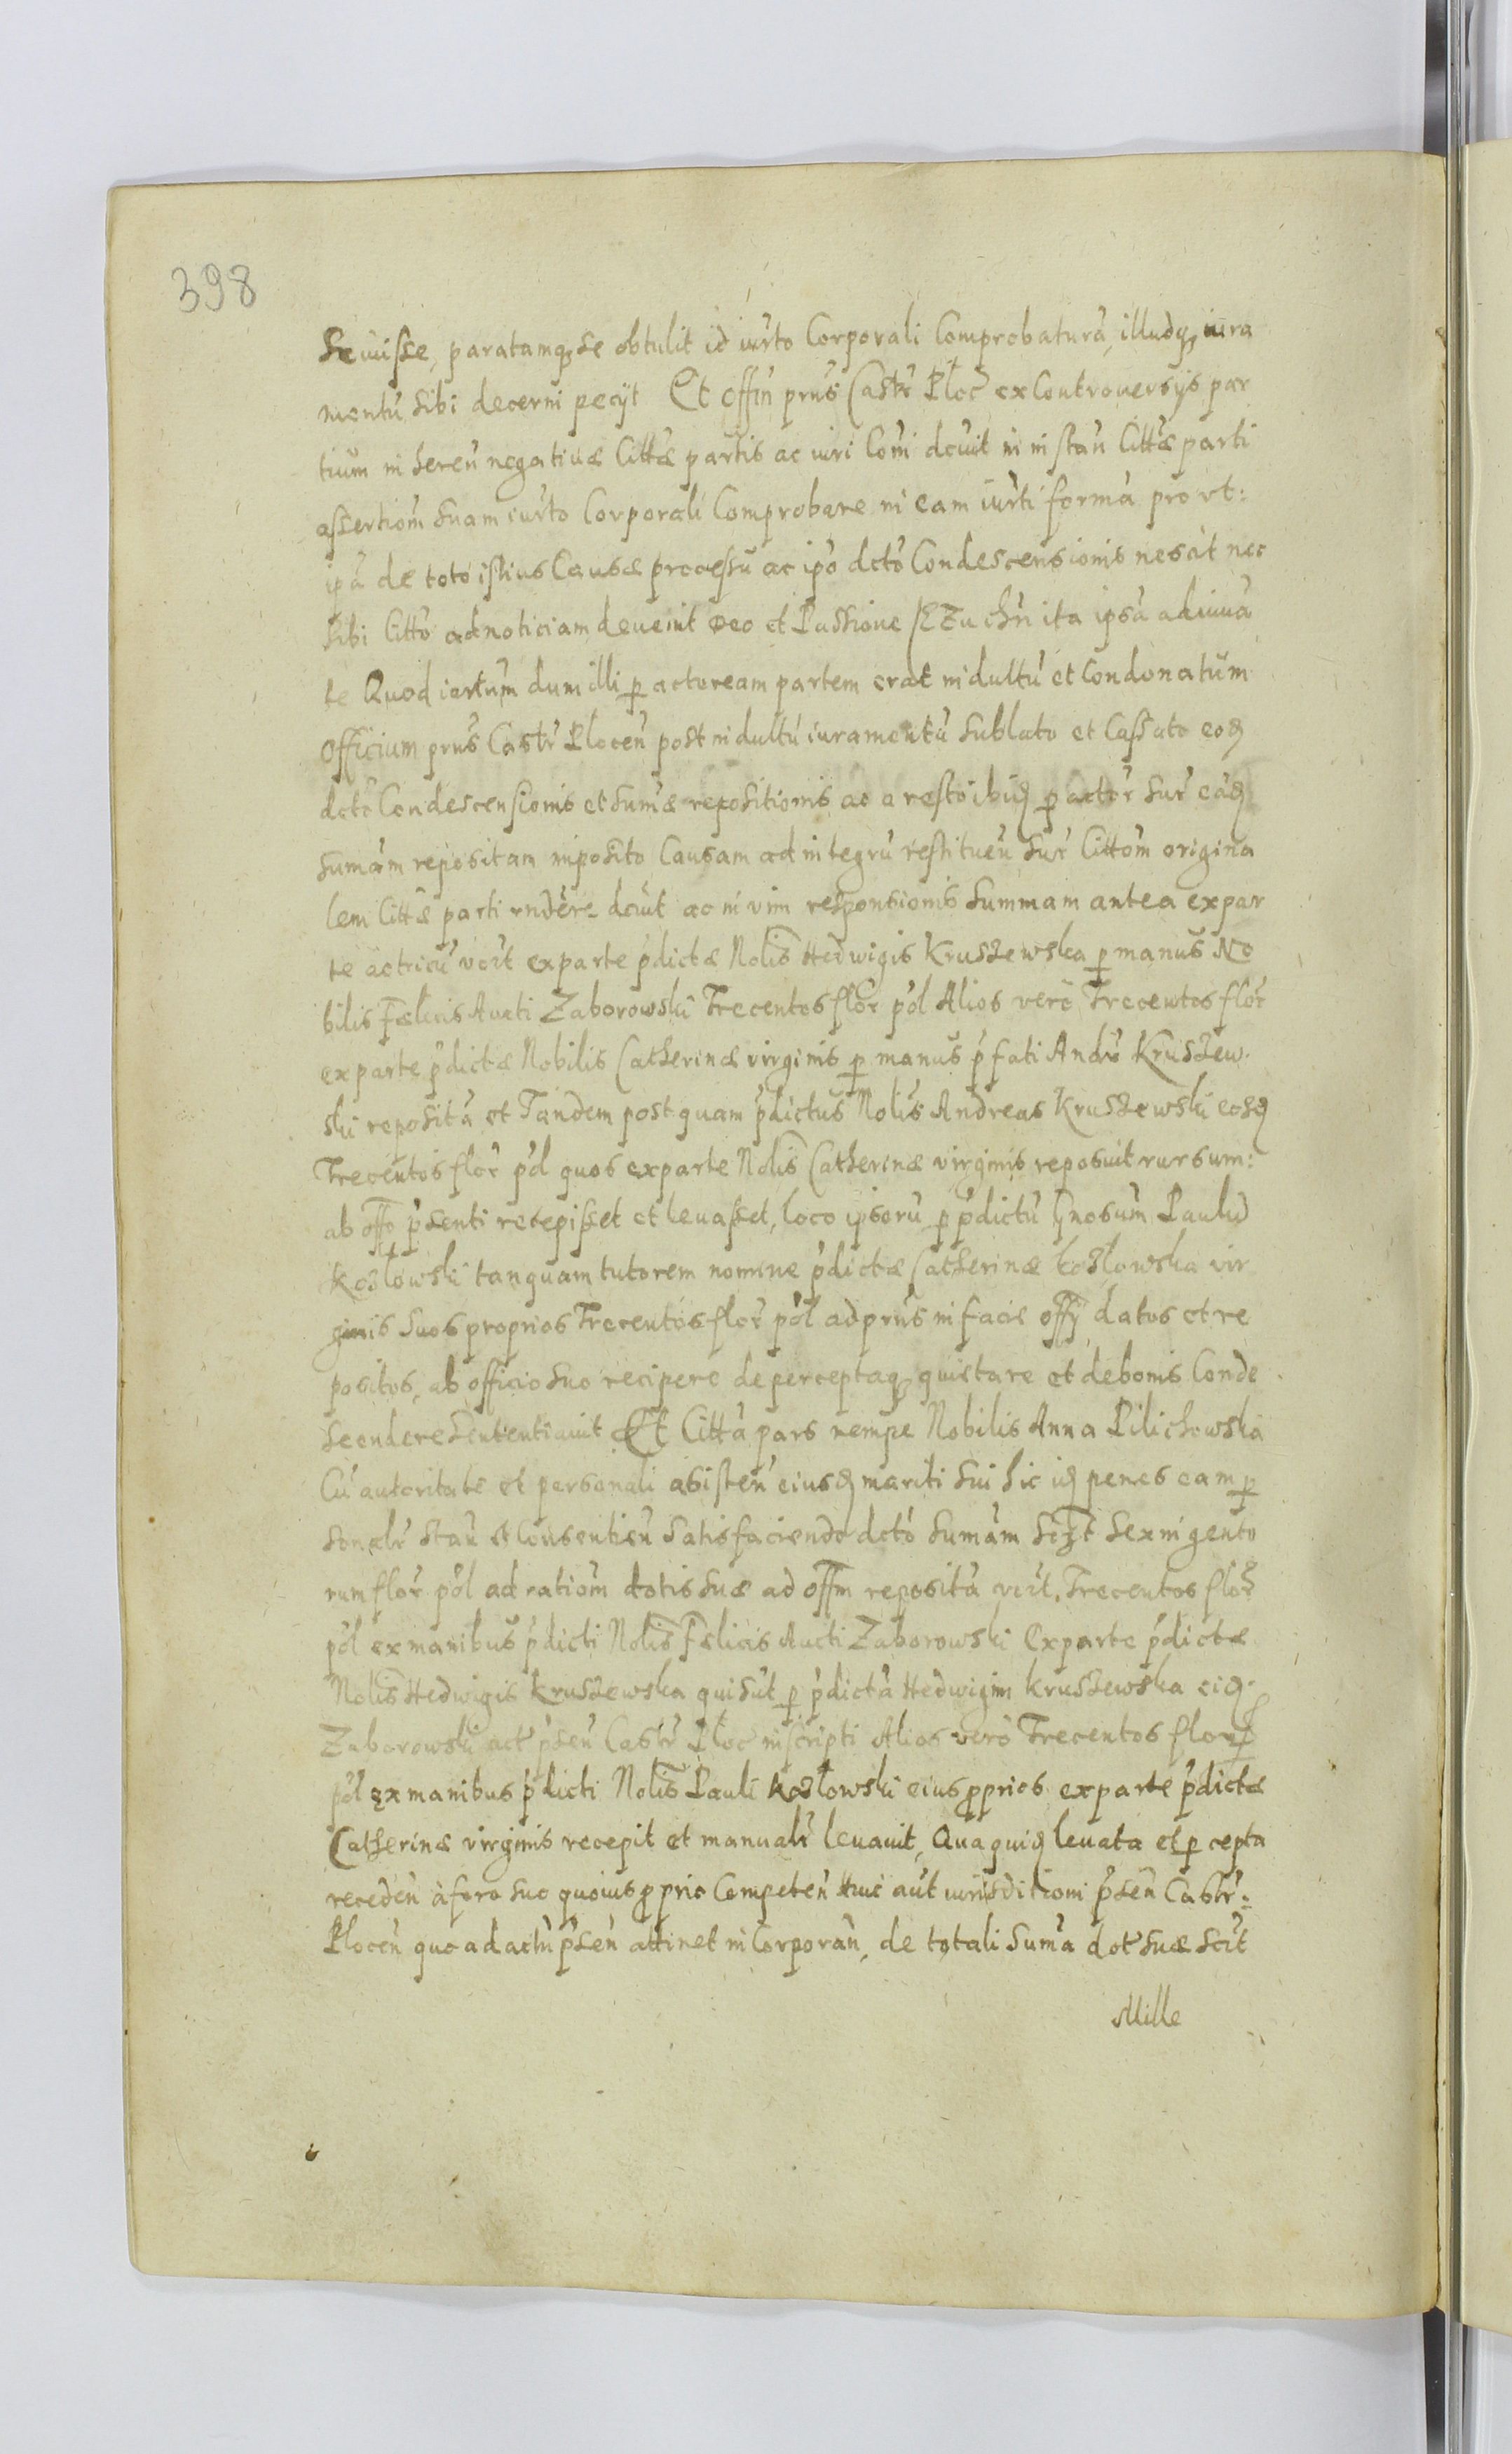 398
Scuisse, paratamq₃ se obtulit id iurto Corporali Comprobaturã, illudq₃ iura
mentũ sibi decerni pecijt Et Offin prns Castr Ploc ex Controuersijs par
tium in heren negatiuæ Cittæ partis ac iuri Coni deuit in instan Cittæ parti
assertiom suam iurto Corporali Comprobare in eam iurti formã pro vt:
ipã de toto istius Causæ processu ac ipo dcto Condescensionis nescit nec
sibi Citto ad noticiam deuenit Deo et Passione IEZu chri ita ipsã adiuua
te Quod iurtum dum illi p actoream partem erat indultũ et Condonatum
Officium prns Castr Plocen post indultũ iuramentũ sublato et Cassato eoq
dcto Condescensionis et sumæ repositionis ac aresto ibiq p actor sur eãq
sumam repositam inposito Causam ad integrũ restituen sur Cittom origina
lem Cittæ parti rndere dcuit ac in vim responsionis Summam antea ex par
te actricũ vczt ex parte pdictæ Nolis Hedwigis Kruszewska p manus No
bilis Fælicis Aucti Zaborowski Trecentos flor pol Alios vero Trecentos flor
ex parte pdictæ Nobilis Catherinæ virginis p manus pfati Andr Kruszew.
ski repositã et Tandem post quam pdictus Nolis Andreas Kruszewski eosq
Trecentos flor pol quos ex parte Nolis Catherinæ virginis reposuit rursum:
ab offo psenti recepisset et leuasset, loco ipsorũ p pdictũ gnosum Paulũ
Kozłowski tanquam tutorem nomine pdictæ Catherinæ Kozłowska vir
ginis suos proprios Trecentos flor pol ad prns in facie offy datos et re
positos, ab officio suo recipere de perceptaq₃ quietare et de bonis Conde
scendere Sententiauit Et Cittã pars nempe Nobilis Anna Pilichowska
Cũ autoritate et personali asisten eiusq mariti sui hic itq penes eam p
sonalr stan et Consentien Satisfaciendo dcto sumam sczt Sexingento
rum flor pol ad ratiom dotis suæ ad offm repositã vczt. Trecentos flor
pol ex manibus pdicti Nolis Fælicis Aucti Zaborowski Ex parte pdictæ
Nolis Hedwigis Kruszewska qui sũt p pdictã Hedwigim Kruszewska eiq.
Zaborowski act psen Castr Ploc inscripti Alios vero Trecentos flor
pol ex manibus pdicti Nolis Pauli Kozłowski eius pprios ex parte pdictæ
Catherinæ virginis recepit et manualr leuauit, Qua quiq leuata et p cepta
receden à foro suo quouis pprio Competen Huic aut iurisditioni psen Castr:
Plocen quo ad actũ psen attinet in Corporan, de totali sumã dot suæ sczt
Mille